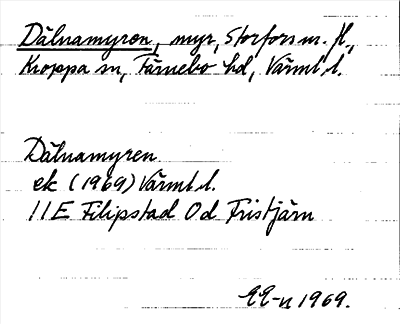 Dälnamyren, myr, Storfors m. fl.,
Kroppa sn, Färnebo hd, Värml. l.
Dälnamyren
ek (1969) Värml. l.
11E Filipstad 0d Tristjärn
1969.